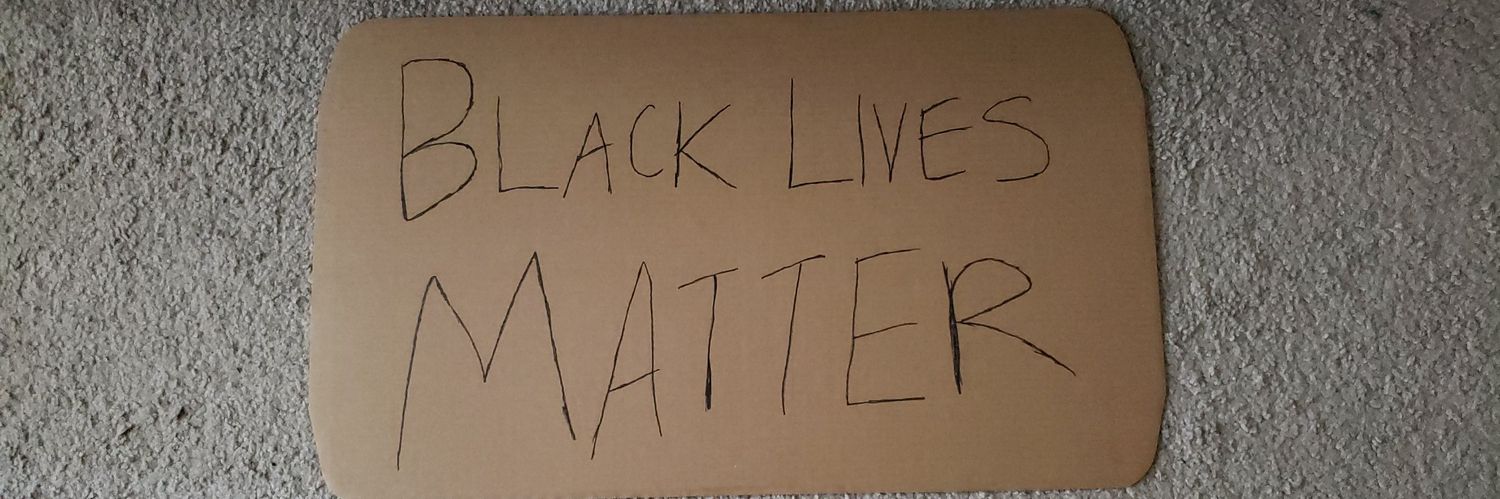 BLACK LIVES
MATTER